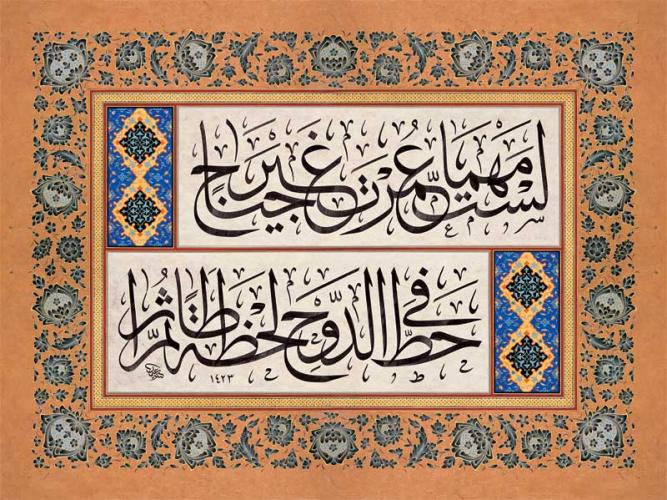 لست مهما عمّرت غير جناح
حطّ في الدّوح لحظة ثمّ طارا
١٤٢٣